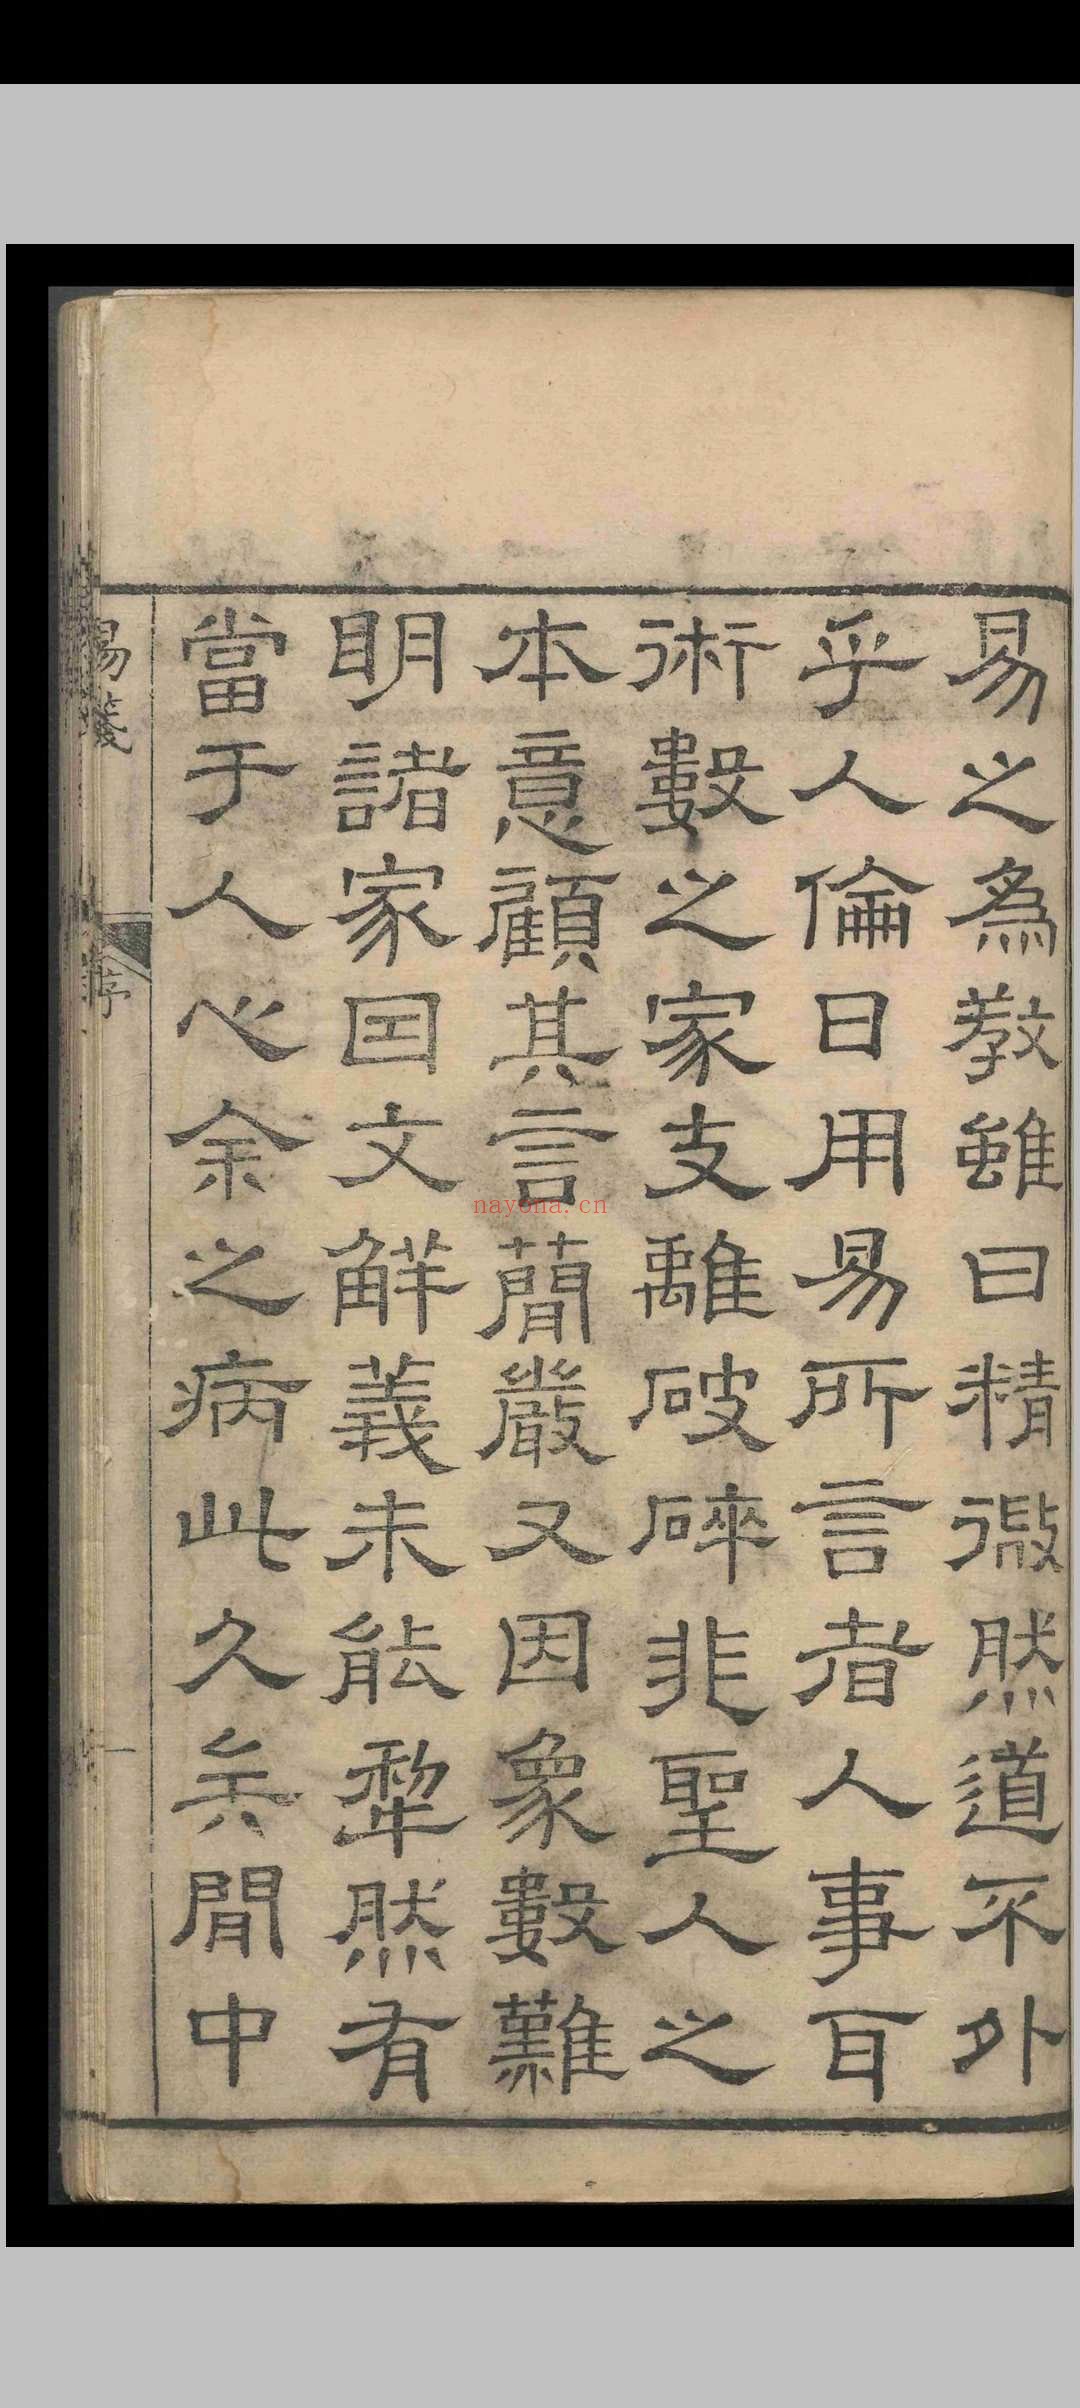 易之為教雖曰精微然道不外
乎人倫日用易所言者人事百
術數之家支離破碎非聖人之
本意顧其言簡嚴又因象數難
明諸家因文解義未能犂然有
當于人心余之病此久矣閒中
易箋
序
一
nayona.cn